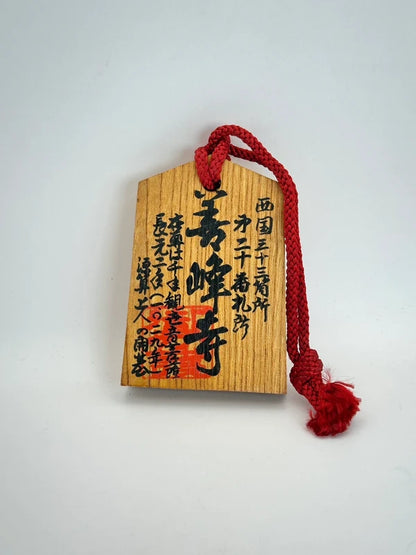 西国三十三箇所
第二十番札所
善峰寺
本尊は千手観世音菩薩
長元二年(一〇二九年)
源算上人の開基